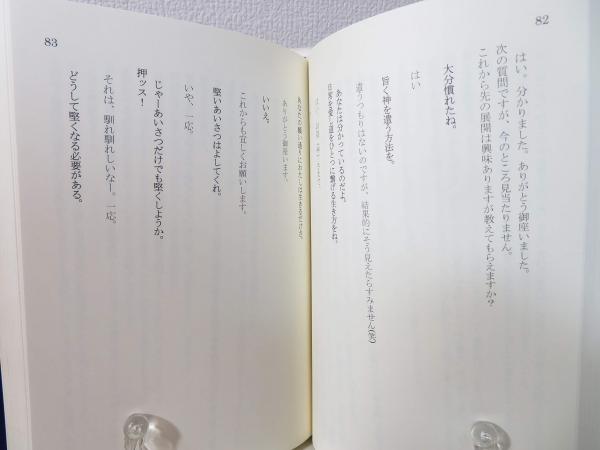 82
はい。分かりました。ありがとう御座いました。
次の質問ですが、今のところ見当たりません。
これから先の展開は興味ありますが教えてもらえますか?
大分慣れたね。
はい
旨く神を遣う方法を。
遣うつもりはないのですが、結果的にそう見えたらすみません(笑)
あなたは分かっているのだよ。
日常を愛し道をひとつに繋げる生き方をね。
83
あなたの願い通りにわたしは生きるだけだ。
ありがとう御座います。
いいえ。
これからも宜しくお願いします。
堅いあいさつはよしてくれ。
いや、一応。
じゃーあいさつだけでも堅くしようか。
押ッス!
それは、馴れ馴れしいなー。一応。
どうして堅くなる必要がある。